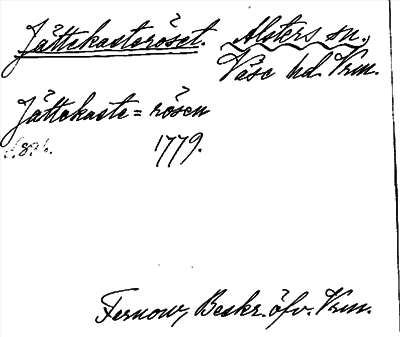 Jättekasteröset. Alsters sn.,
Väse hd. Vrm.
Jättekaste=rösen
1779.
Fernow, Beskr. öfv. Vrm.